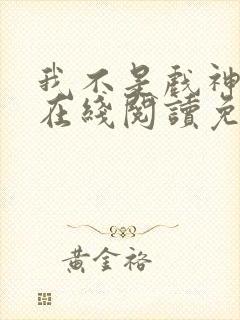 我不是戲神
在綫閱讀免
黃金裕